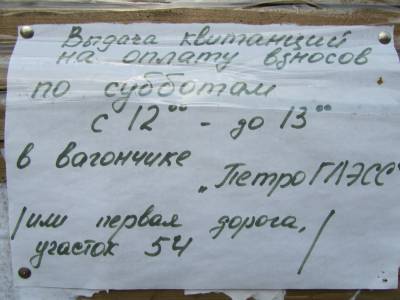 Выдача квитанций
на оплату взносов
по субботам
с 12°° - до 13°°
в вагончике
„Петро ГЛЭСС"
/или первая дорога, /
участок 54